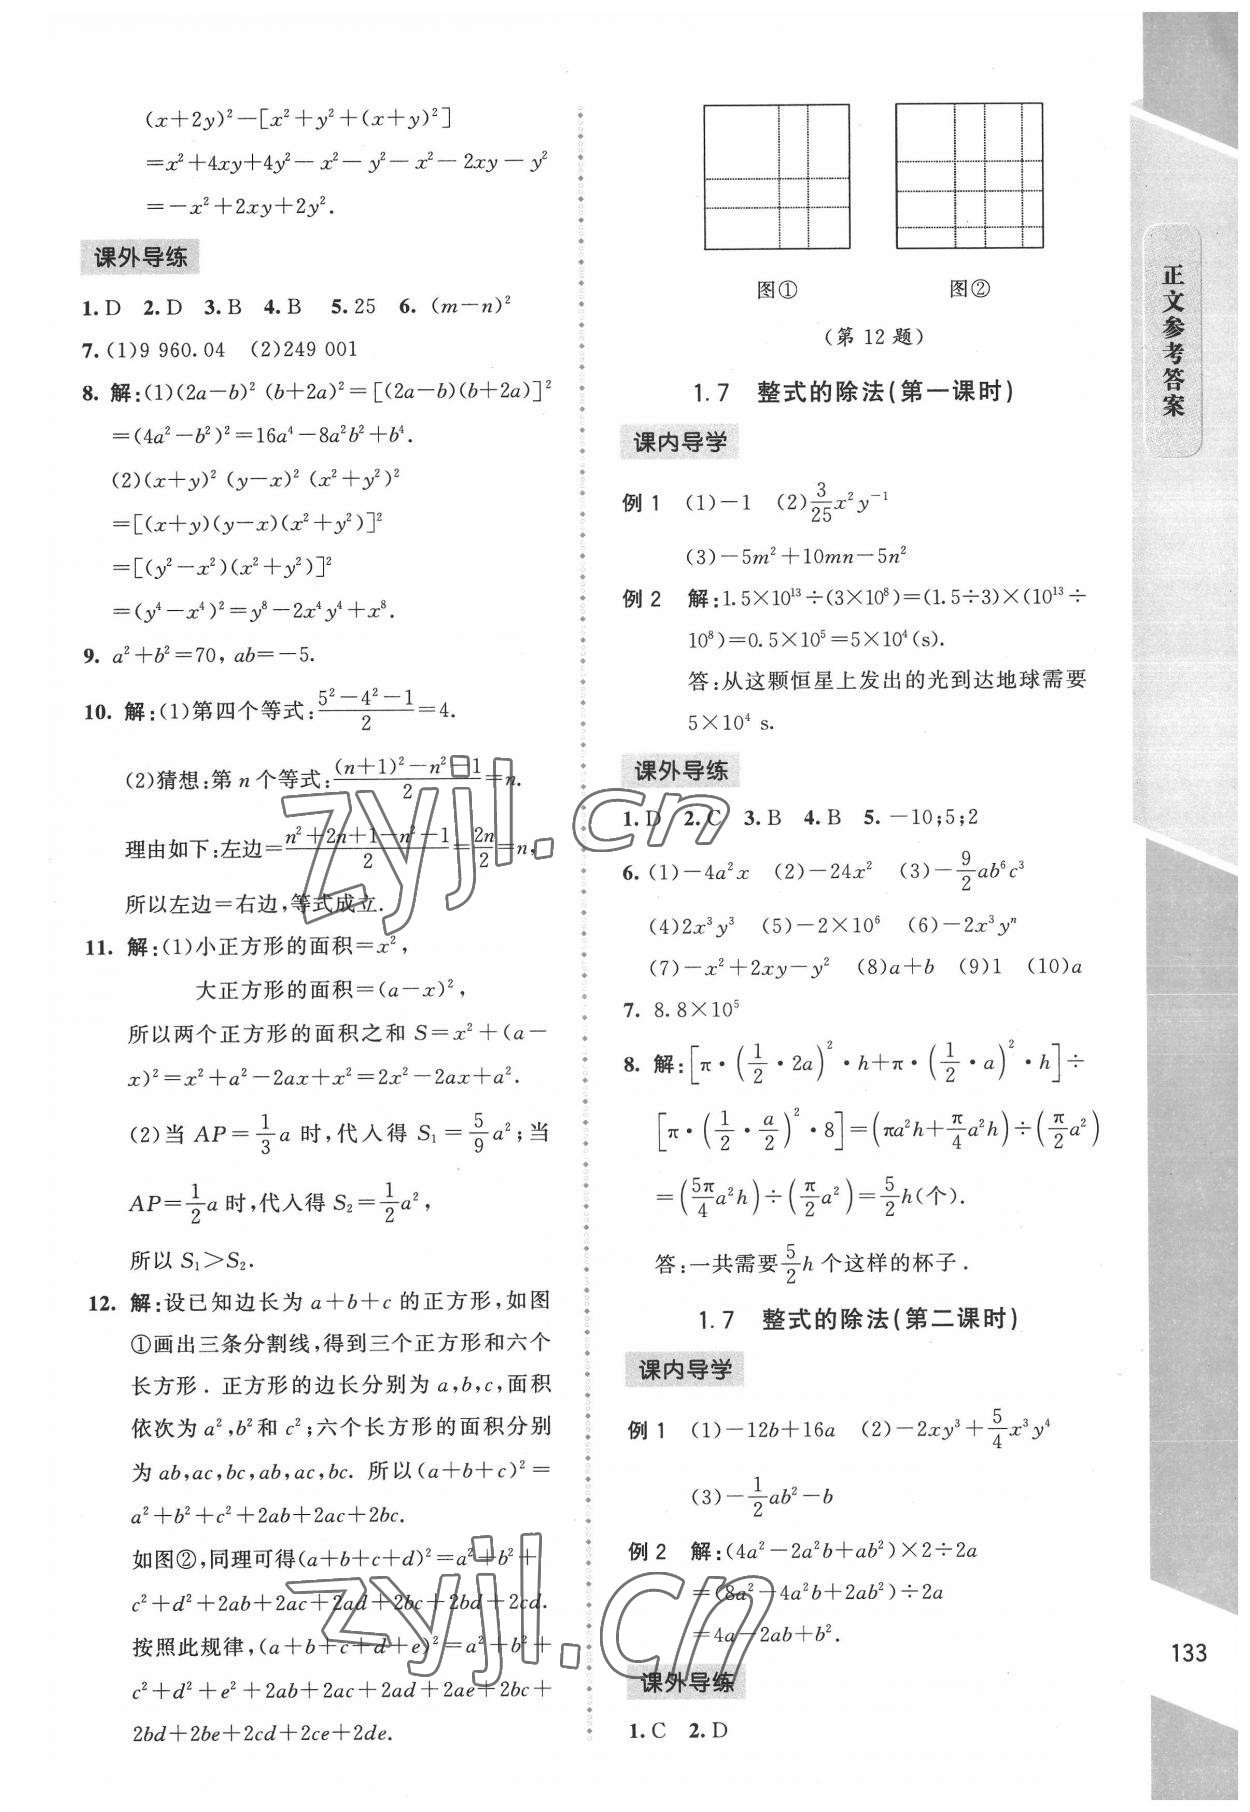 (x+2y)²-[x²+y²+(x+y)²]
=x²+4xy+4y²-x²-y²-x²-2xy-y²
=-x²+2xy+2y².
课外导练
1. D 2. D 3. B 4. B 5. 25 6. (m-n)²
7. (1)9 960.04 (2)249 001
8. 解:(1)(2a-b)² (b+2a)²=[(2a-b)(b+2a)]²
=(4a²-b²)²=16a⁴-8a²b²+b⁴.
(2)(x+y)² (y-x)² (x²+y²)²
=[(x+y)(y-x)(x²+y²)]²
=[(y²-x²)(x²+y²)]²
=(y⁴-x⁴)²=y⁸-2x⁴y⁴+x⁸.
9. a²+b²=70, ab=-5.
10. 解:(1)第四个等式:(5²-4²-1)/2=4.
(2)猜想:第 n 个等式:((n+1)²-n²-1)/2=n.
理由如下:左边=(n²+2n+1-n²-1)/2=2n/2=n,
所以左边=右边,等式成立.
11. 解:(1)小正方形的面积=x²,
大正方形的面积=(a-x)²,
所以两个正方形的面积之和 S=x²+(a-
x)²=x²+a²-2ax+x²=2x²-2ax+a².
(2)当 AP=1/3 a 时,代入得 S₁=5/9 a²;当
AP=1/2 a 时,代入得 S₂=1/2 a²,
所以 S₁>S₂.
12. 解:设已知边长为 a+b+c 的正方形,如图
①画出三条分割线,得到三个正方形和六个
长方形. 正方形的边长分别为 a,b,c,面积
依次为 a²,b²和 c²;六个长方形的面积分别
为 ab,ac,bc,ab,ac,bc. 所以(a+b+c)²=
a²+b²+c²+2ab+2ac+2bc.
如图②,同理可得(a+b+c+d)²=a²+b²+
c²+d²+2ab+2ac+2ad+2bc+2bd+2cd.
按照此规律,(a+b+c+d+e)²=a²+b²+
c²+d²+e²+2ab+2ac+2ad+2ae+2bc+
2bd+2be+2cd+2ce+2de.
图① 图②
(第 12 题)
1.7 整式的除法(第一课时)
课内导学
例 1 (1)-1 (2)3/25 x²y⁻¹
(3)-5m²+10mn-5n²
例 2 解:1.5×10¹³÷(3×10⁸)=(1.5÷3)×(10¹³÷
10⁸)=0.5×10⁵=5×10⁴(s).
答:从这颗恒星上发出的光到达地球需要
5×10⁴ s.
课外导练
1. D 2. C 3. B 4. B 5. -10;5;2
6. (1)-4a²x (2)-24x² (3)-9/2 ab⁶c³
(4)2x³y³ (5)-2×10⁶ (6)-2x³yⁿ
(7)-x²+2xy-y² (8)a+b (9)1 (10)a
7. 8.8×10⁵
8. 解:[π·(1/2·2a)²·h+π·(1/2·a)²·h]÷
[π·(1/2·a/2)²·8]=(πa²h+π/4 a²h)÷(π/2 a²)
=(5π/4 a²h)÷(π/2 a²)=5/2 h(个).
答:一共需要 5/2 h 个这样的杯子.
1.7 整式的除法(第二课时)
课内导学
例 1 (1)-12b+16a (2)-2xy³+5/4 x³y⁴
(3)-1/2 ab²-b
例 2 解:(4a²-2a²b+ab²)×2÷2a
=(8a²-4a²b+2ab²)÷2a
=4a-2ab+b².
课外导练
1. C 2. D
正文参考答案
133
zyjl.cn
zyjl.cn